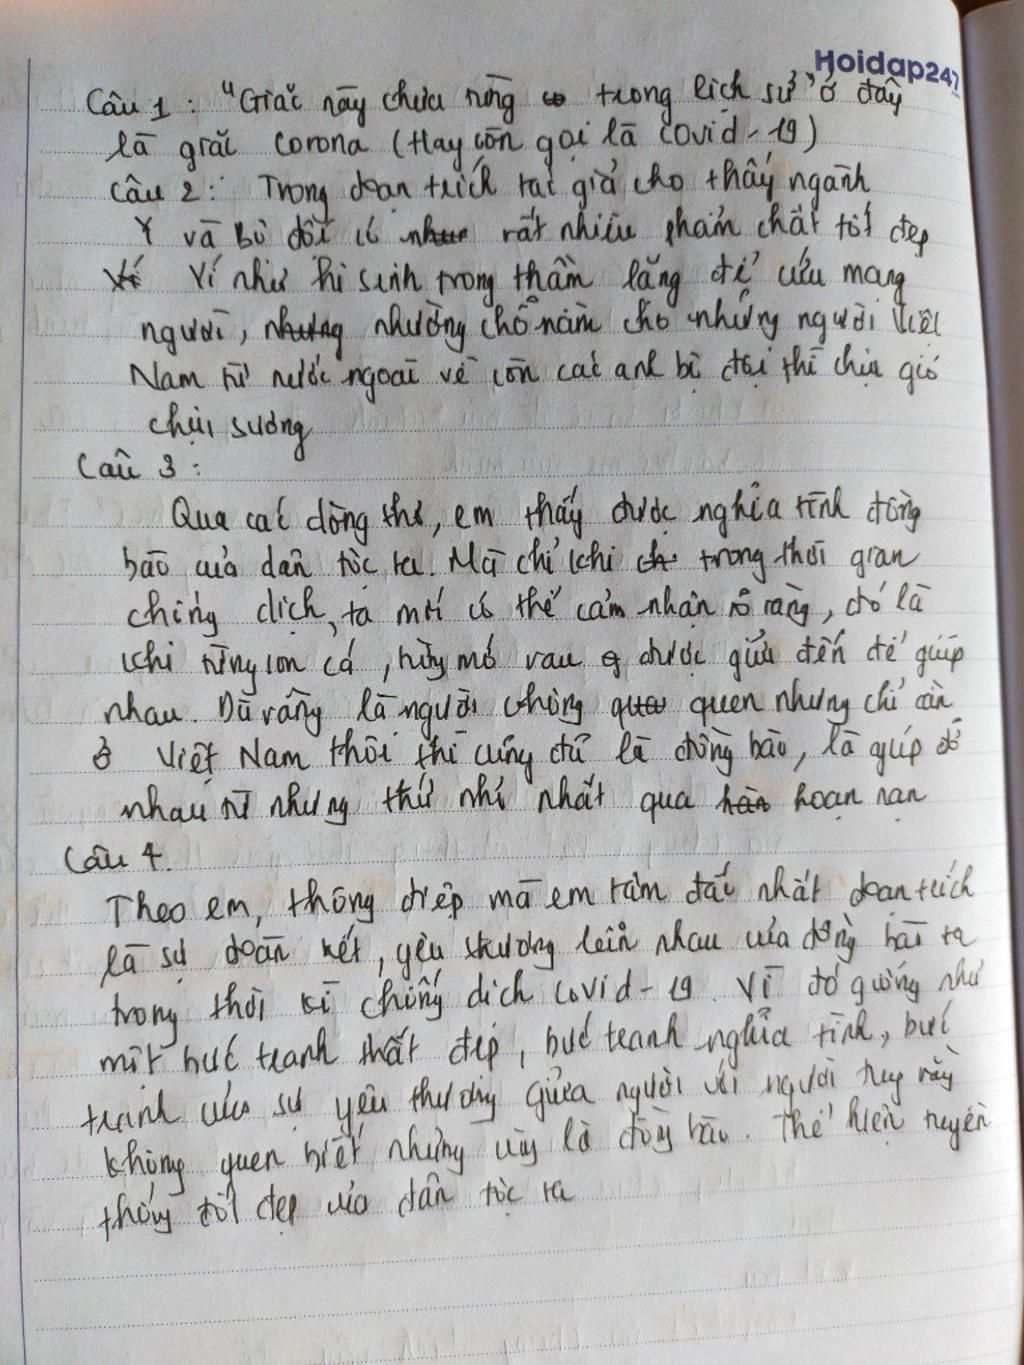 Hoidap247
Câu 1: "Giặc này chưa từng có trong lịch sử" ở đây
là giặc corona (Hay còn gọi là covid-19)
Câu 2: Trong đoạn trích tác giả cho thấy ngành
Y và Bộ đội có rất nhiều phẩm chất tốt đẹp
Ví như hi sinh trong thầm lặng để cứu mang
người, nhường chỗ nằm cho những người Việt
Nam từ nước ngoài về còn các anh bộ đội thì chịu gió
chịu sương
Câu 3:
Qua các dòng thơ, em thấy được nghĩa tình đồng
bào của dân tộc ta. Mà chỉ khi trong thời gian
chống dịch, ta mới có thể cảm nhận rõ ràng, đó là
khi từng con cá, từng mớ rau được gửi đến để giúp
nhau. Dù rằng là người không quen nhưng chỉ cần
ở Việt Nam thôi thì cũng đủ là đồng bào, là giúp đỡ
nhau từ những thứ nhỏ nhất qua hoạn nạn
Câu 4.
Theo em, thông điệp mà em tâm đắc nhất đoạn trích
là sự đoàn kết, yêu thương lẫn nhau của đồng bào ta
trong thời kì chống dịch covid-19. Vì đó giường như
một bức tranh thất đẹp, bức tranh nghĩa tình, bức
tranh của sự yêu thương giữa người với người tuy rằng
không quen biết nhưng cùng là đồng bào. Thể hiện truyền
thống tốt đẹp của dân tộc ta